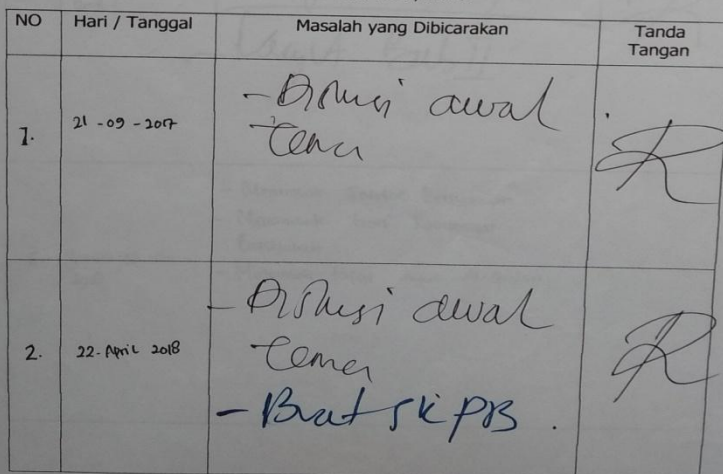 NO Hari / Tanggal Masalah yang Dibicarakan Tanda Tangan
1. 21-09-2017 - Diskusi awal
tema
2. 22-April 2018 - Diskusi awal
tema
- Buat SK PB.